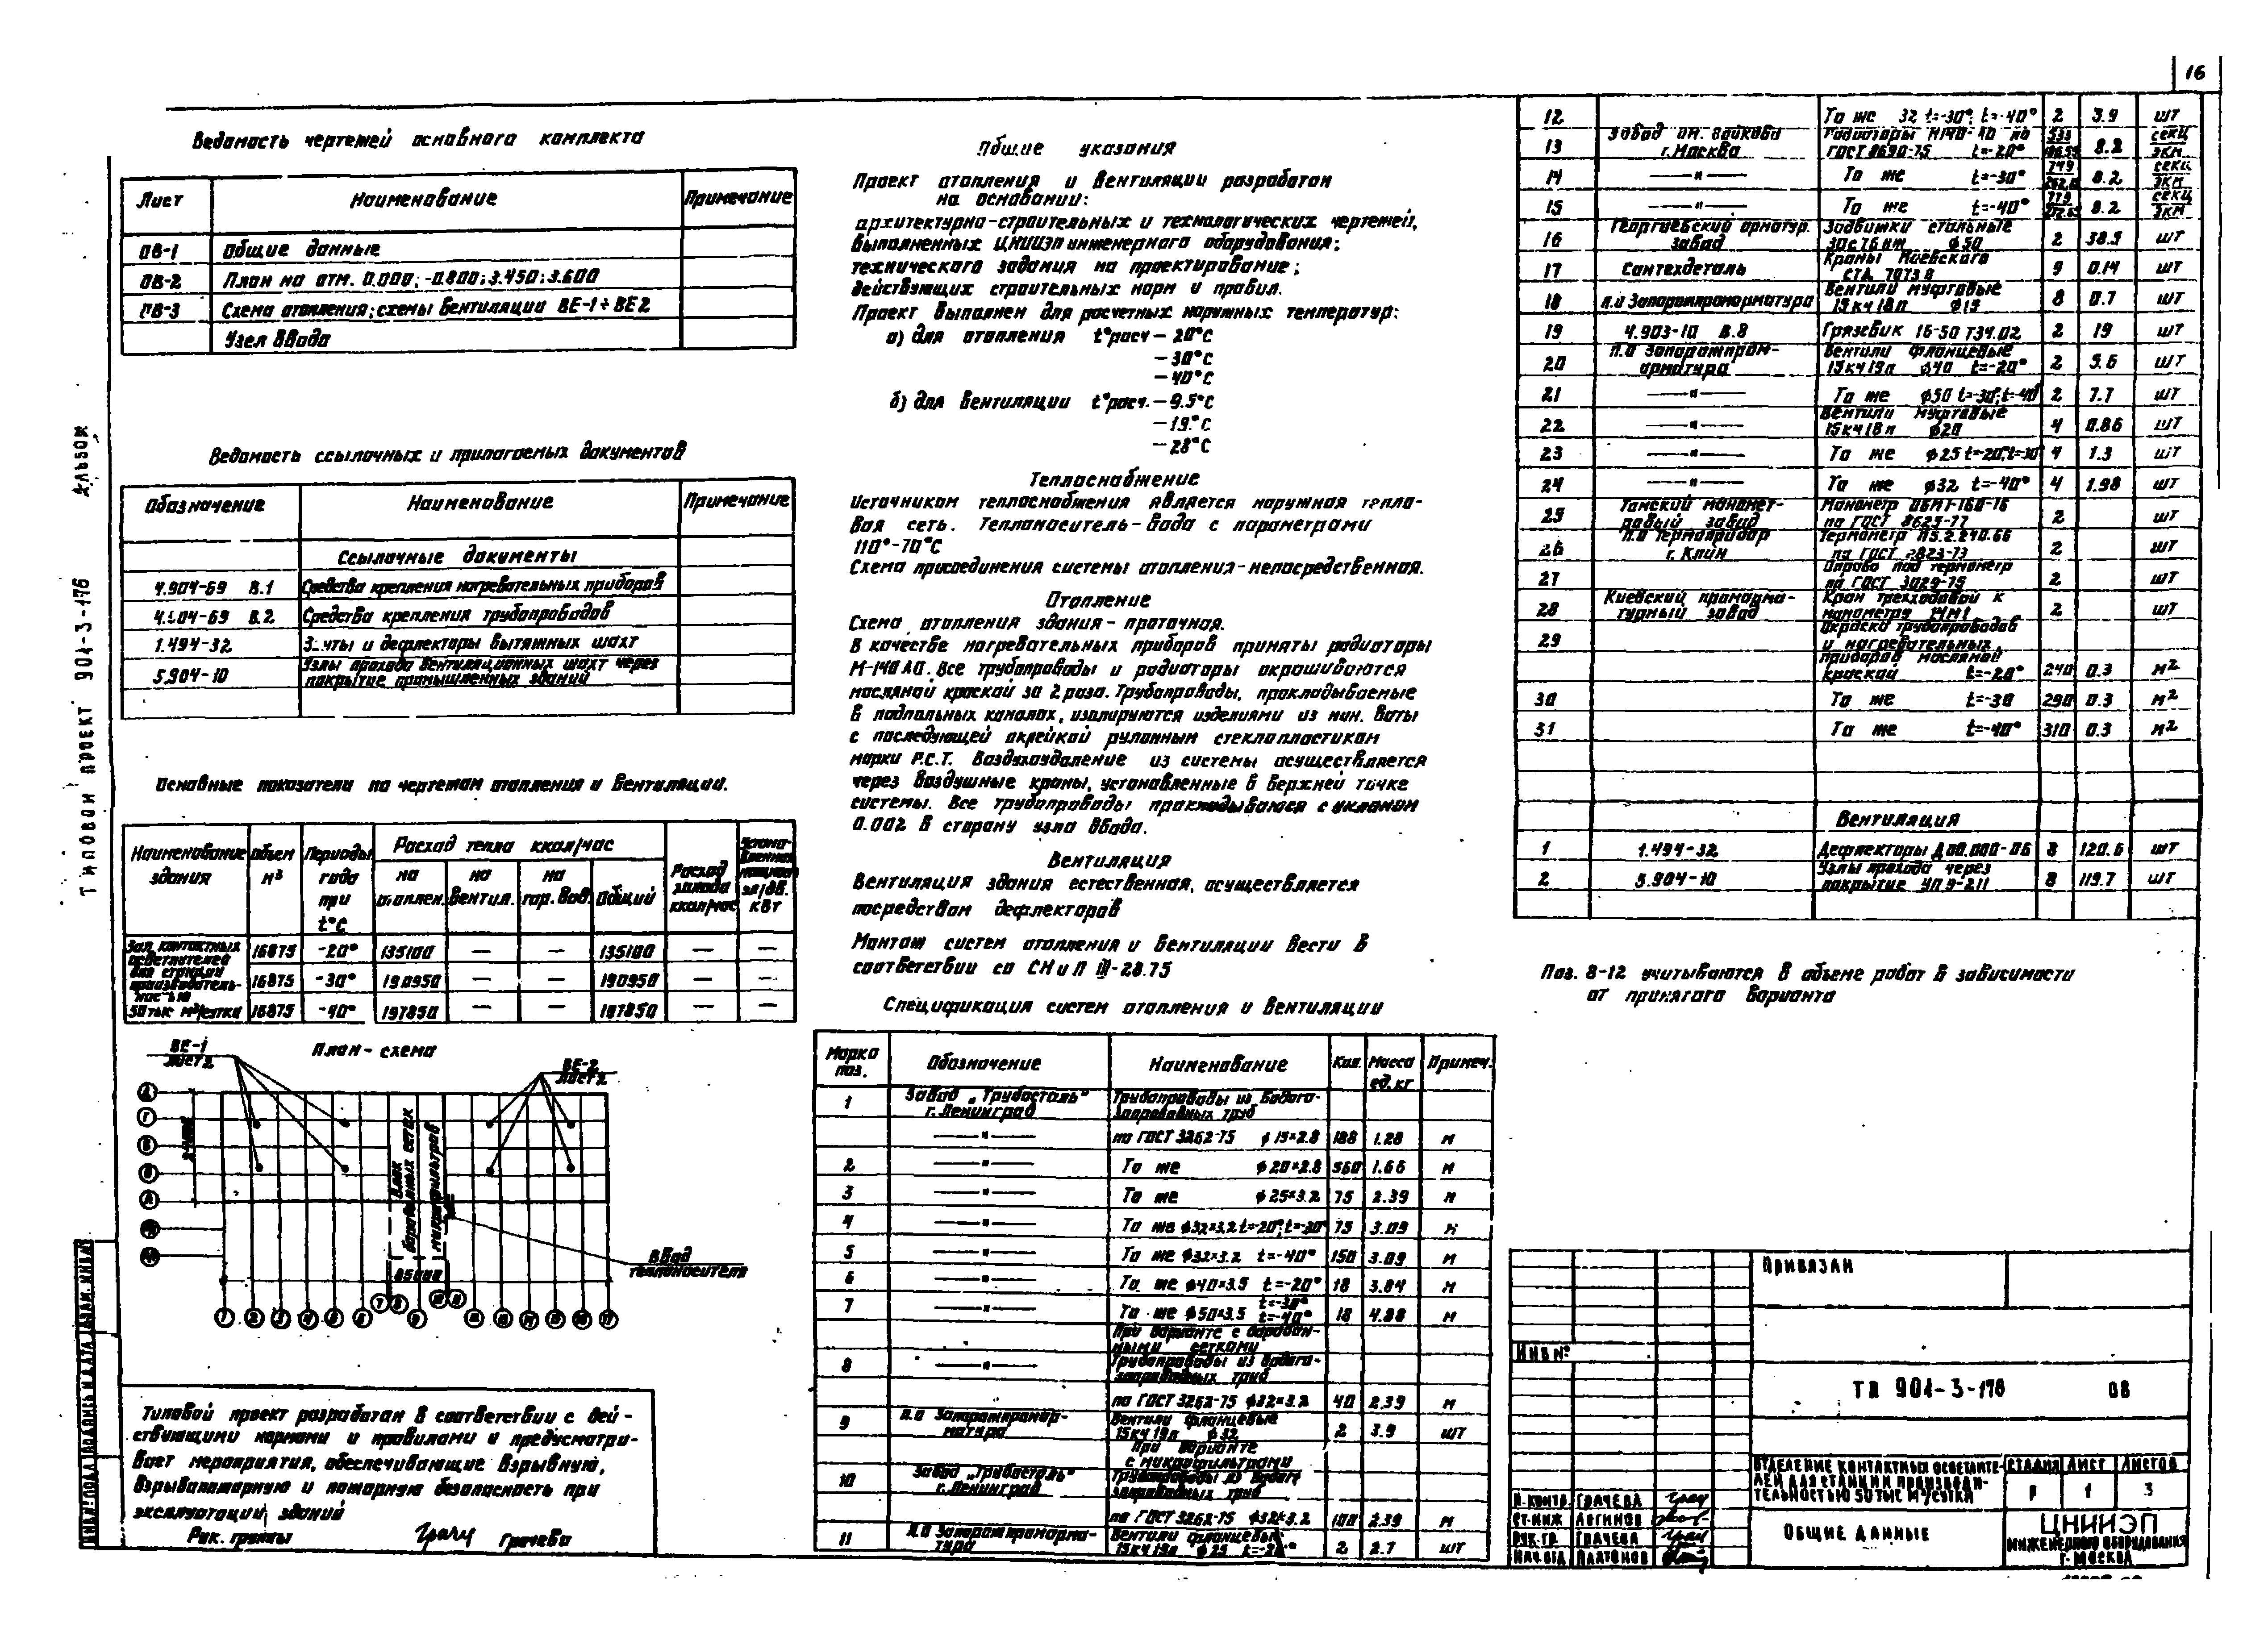 16
Ведомость чертежей основного комплекта
Лист Наименование Примечание
ОВ-1 Общие данные
ОВ-2 План на отм. 0.000; -0.800; 3.450; 3.600
ОВ-3 Схема отопления; схемы вентиляции ВЕ-1÷ВЕ2
Узел ввода
Ведомость ссылочных и прилагаемых документов
Обозначение Наименование Примечание
Ссылочные документы
4.904-69 В.1 Средства крепления нагревательных приборов
4.904-69 В.2 Средства крепления трубопроводов
1.494-32 Зонты и дефлекторы вытяжных шахт
5.904-10 Узлы прохода вентиляционных шахт через
покрытие промышленных зданий
Основные показатели по чертежам отопления и вентиляции.
Наименование здания Объем м³ Периоды года при t°С Расход тепла ккал/час Расход холода ккал/час Установленная мощность эл/дв. кВт
на отоплен. на вентил. на гор. вод. Общий
Зал контактных осветлителей для станции производительностью 50 тыс м³/сутки
16875 -20° 135100 — — 135100 — —
16875 -30° 190950 — — 190950 — —
16875 -40° 197850 — — 197850 — —
План-схема
ВЕ-1
лист 2
ВЕ-2
лист 2
Блок
барабанных сеток
микрофильтров
Ввод
теплоносителя
1 2 3 4 5 6 7 8 9 10 11 12 13 14 15 16 17
Типовой проект разработан в соответствии с дей-
ствующими нормами и правилами и предусматри-
вает мероприятия, обеспечивающие взрывную,
взрывопожарную и пожарную безопасность при
эксплуатации зданий
Рук. группы Грачева
ТИПОВОЙ ПРОЕКТ 901-3-176 АЛЬБОМ
ИНВ.№ ПОДЛ. ПОДПИСЬ И ДАТА ВЗАМ. ИНВ.№
Общие указания
Проект отопления и вентиляции разработан
на основании:
архитектурно-строительных и технологических чертежей,
выполненных ЦНИИЭП инженерного оборудования;
технического задания на проектирование;
действующих строительных норм и правил.
Проект выполнен для расчетных наружных температур:
а) для отопления t°расч – 20°С
– 30°С
– 40°С
б) для вентиляции t°расч. – 9.5°С
– 19°С
– 28°С
Теплоснабжение
Источником теплоснабжения является наружная тепло-
вая сеть. Теплоноситель-вода с параметрами
110°-70°С
Схема присоединения системы отопления-непосредственная.
Отопление
Схема отопления здания-проточная.
В качестве нагревательных приборов приняты радиаторы
М-140 АО. Все трубопроводы и радиаторы окрашиваются
масляной краской за 2 раза. Трубопроводы, прокладываемые
в подпольных каналах, изолируются изделиями из мин. ваты
с последующей оклейкой рулонным стеклопластиком
марки Р.С.Т. Воздухоудаление из системы осуществляется
через воздушные краны, установленные в верхней точке
системы. Все трубопроводы прокладываюся с уклоном
0.002 в сторону узла ввода.
Вентиляция
Вентиляция здания естественная, осуществляется
посредством дефлекторов
Монтаж систем отопления и вентиляции вести в
соответствии со СНиП III-28.75
Спецификация систем отопления и вентиляции
Марка поз. Обозначение Наименование Кол. Масса ед. кг Примеч.
1 Завод „Трубосталь" г. Ленинград Трубопроводы из водога-
зопроводных труб
—"— по ГОСТ 3262-75 φ15×2.8 188 1.28 м
2 —"— То же φ20×2.8 560 1.66 м
3 —"— То же φ25×3.2 75 2.39 м
4 —"— То же φ32×3.2 t=-20°; t=-30° 75 3.09 м
5 —"— То же φ32×3.2 t=-40° 150 3.09 м
6 —"— То же φ40×3.5 t=-20° 18 3.84 м
7 —"— То же φ50×3.5 t=-30° t=-40° 18 4.88 м
При варианте с барабан-
ными сетками
8 —"— Трубопроводы из водога-
зопроводных труб
по ГОСТ 3262-75 φ32×3.2 40 2.39 м
9 П.О Запорпромар-
матура Вентили фланцевые
15кч19п φ32 2 3.9 шт
При варианте
с микрофильтрами
10 Завод „Трубосталь" г. Ленинград Трубопроводы из водог
зопроводных труб
по ГОСТ 3262-75 φ32×3.2 100 2.39 м
11 П.О Запорпромарма-
тура Вентили фланцевые
15кч19п φ25 t=-20° 2 2.7 шт
12 То же 32 t=-30°; t=-40° 2 3.9 шт
13 Завод им. Войкова г. Москва Радиаторы М140-АО по
ГОСТ 8690-75 t=-20° 533 8.2 секц/экм
14 —"— То же t=-30° 749 8.2 секц/экм
15 —"— То же t=-40° 779 8.2 секц/экм
16 Георгиевский арматур. завод Задвижки стальные
30с76нж φ50 2 38.5 шт
17 Сантехдеталь Краны Маевского
СТД 7073 В 9 0.14 шт
18 П.О Запорпромарматура Вентили муфтовые
15кч18п φ15 8 0.7 шт
19 4.903-10 В.8 Грязевик 16-50 Т34.02 2 19 шт
20 П.О Запорпром-
арматура Вентили фланцевые
15кч19п φ40 t=-20° 2 5.6 шт
21 —"— То же φ50 t=-30°; t=-40° 2 7.7 шт
22 —"— Вентили муфтовые
15кч18п φ20 4 0.86 шт
23 —"— То же φ25 t=-20°; t=-30° 4 1.3 шт
24 —"— То же φ32 t=-40° 4 1.98 шт
25 Томский маномет-
ровый завод Манометр ОБМ1-160-16
по ГОСТ 8625-77 2 шт
26 П.О Термоприбор г. Клин Термометр П5.2.240.66
по ГОСТ 2823-73 2 шт
27 Оправа под термометр
по ГОСТ 3029-75 2 шт
28 Киевский промарма-
турный завод Кран трехходовой к
манометру 14М1 2 шт
29 Окраска трубопроводов
и нагревательных
приборов масляной
краской t=-20° 240 0.3 м²
30 То же t=-30 290 0.3 м²
31 То же t=-40° 310 0.3 м²
Вентиляция
1 1.494-32 Дефлекторы Д00.000-06 8 120.6 шт
2 5.904-10 Узлы прохода через
покрытие УП 9-211 8 119.7 шт
Поз. 8-12 учитываются в объеме работ в зависимости
от принятого варианта
ПРИВЯЗАН
ИНВ №
ТП 901-3-176 ОВ
ОТДЕЛЕНИЕ КОНТАКТНЫХ ОСВЕТЛИТЕ-
ЛЕЙ ДЛЯ СТАНЦИИ ПРОИЗВОДИ-
ТЕЛЬНОСТЬЮ 50 ТЫС М³/СУТКИ
СТАДИЯ ЛИСТ ЛИСТОВ
Р 1 3
Н.КОНТР. ГРАЧЕВА
СТ.ИНЖ ЛОГИНОВ
РУК.ГР. ГРАЧЕВА
НАЧ.ОТД ПЛАТОНОВ
ОБЩИЕ ДАННЫЕ
ЦНИИЭП
ИНЖЕНЕРНОГО ОБОРУДОВАНИЯ
Г. МОСКВА